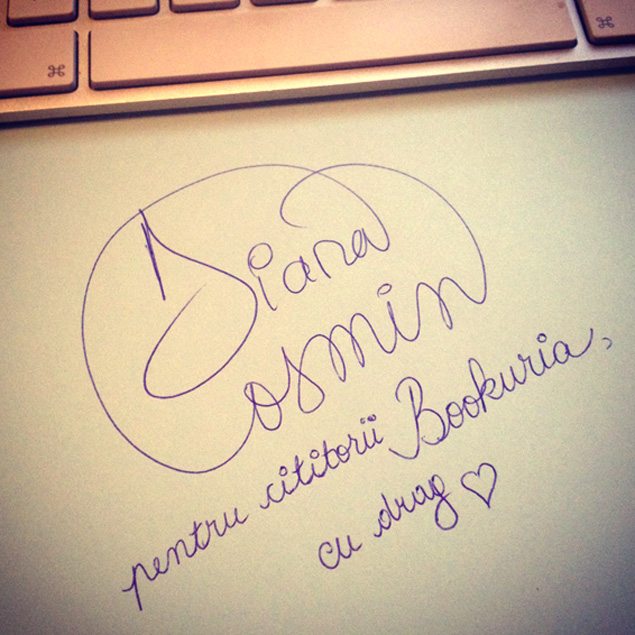 ⌘ ⌘
Diana
Cosmin
pentru cititorii Bookuria,
cu drag ♡